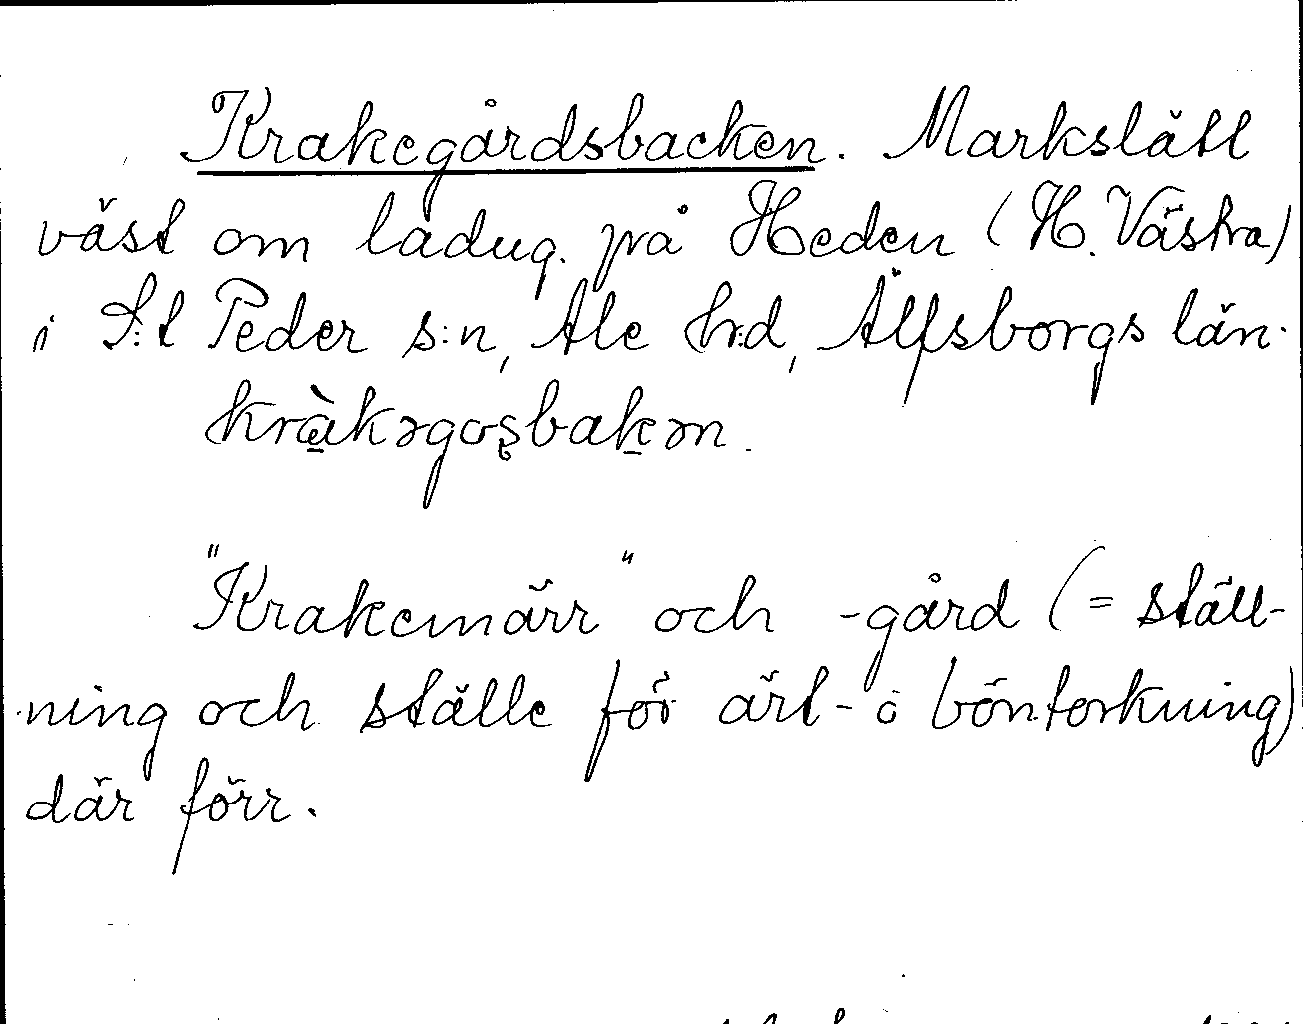 Krakegårdsbacken. Markslätt
väst om ladug. på Heden (H. Västra)
i S:t Peder s:n, Ale h:d, Älfsborgs län.
kràkəgoʂbakən.
"Krakemärr" och -gård (= ställ-
ning och ställe för ärt- o böntorkning)
där förr.